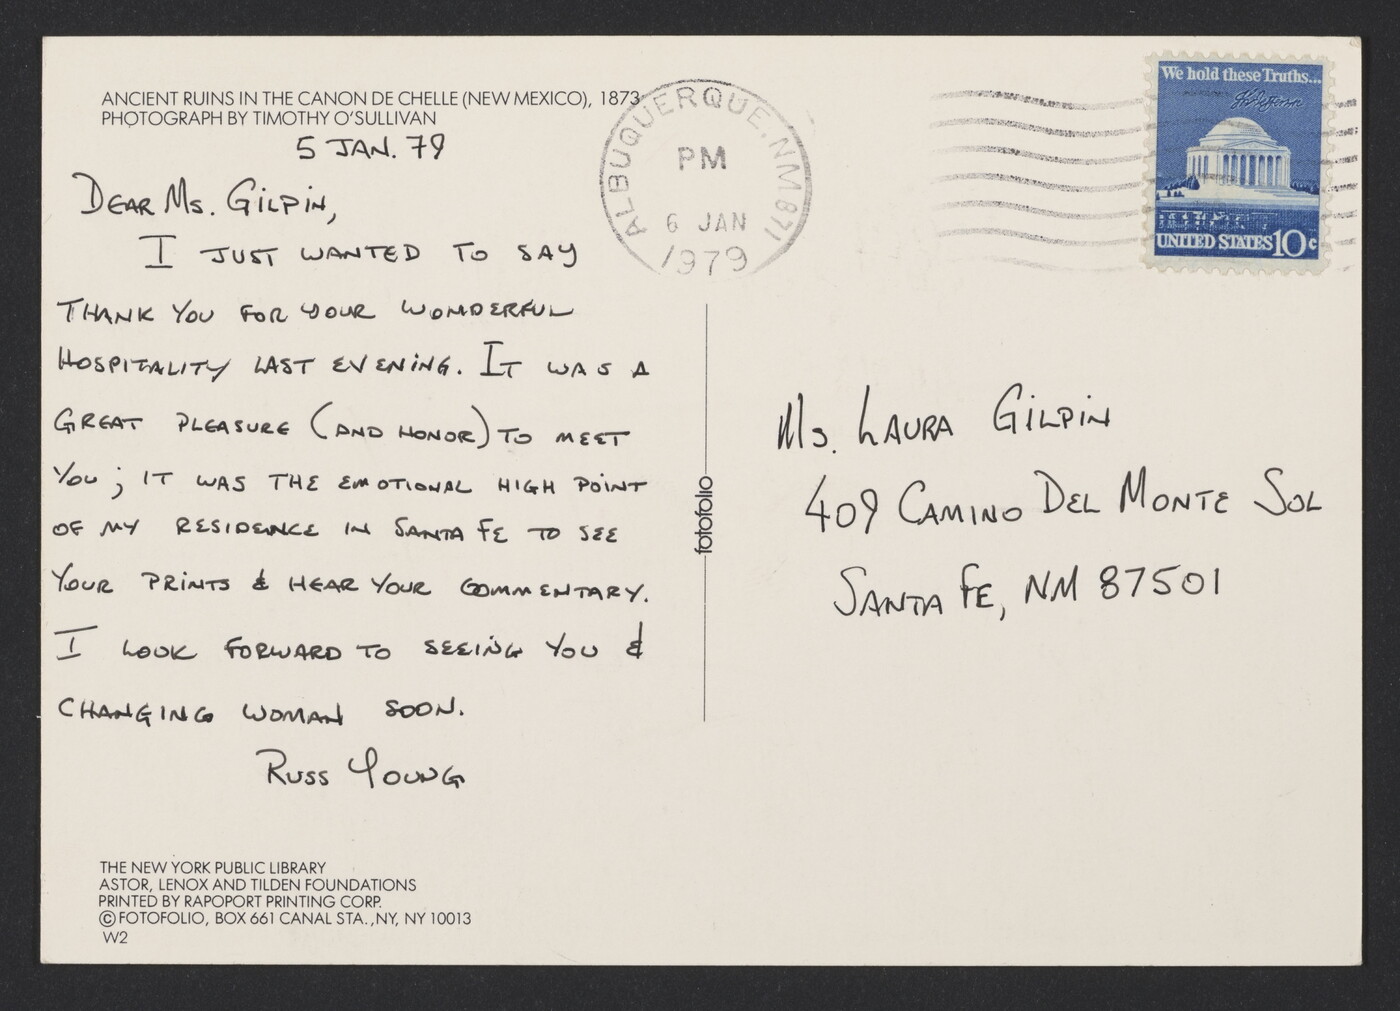 ANCIENT RUINS IN THE CANON DE CHELLE (NEW MEXICO), 1873
PHOTOGRAPH BY TIMOTHY O'SULLIVAN
5 JAN. 79
DEAR MS. GILPIN,
I JUST WANTED TO SAY
THANK YOU FOR YOUR WONDERFUL
HOSPITALITY LAST EVENING. IT WAS A
GREAT PLEASURE (AND HONOR) TO MEET
YOU; IT WAS THE EMOTIONAL HIGH POINT
OF MY RESIDENCE IN SANTA FE TO SEE
YOUR PRINTS & HEAR YOUR COMMENTARY.
I LOOK FORWARD TO SEEING YOU &
CHANGING WOMAN SOON.
RUSS YOUNG
THE NEW YORK PUBLIC LIBRARY
ASTOR, LENOX AND TILDEN FOUNDATIONS
PRINTED BY RAPOPORT PRINTING CORP.
© FOTOFOLIO, BOX 661 CANAL STA., NY, NY 10013
W2
fotofolio
ALBUQUERQUE, NM 871
PM
6 JAN
1979
We hold these Truths...
UNITED STATES 10c
MS. LAURA GILPIN
409 CAMINO DEL MONTE SOL
SANTA FE, NM 87501